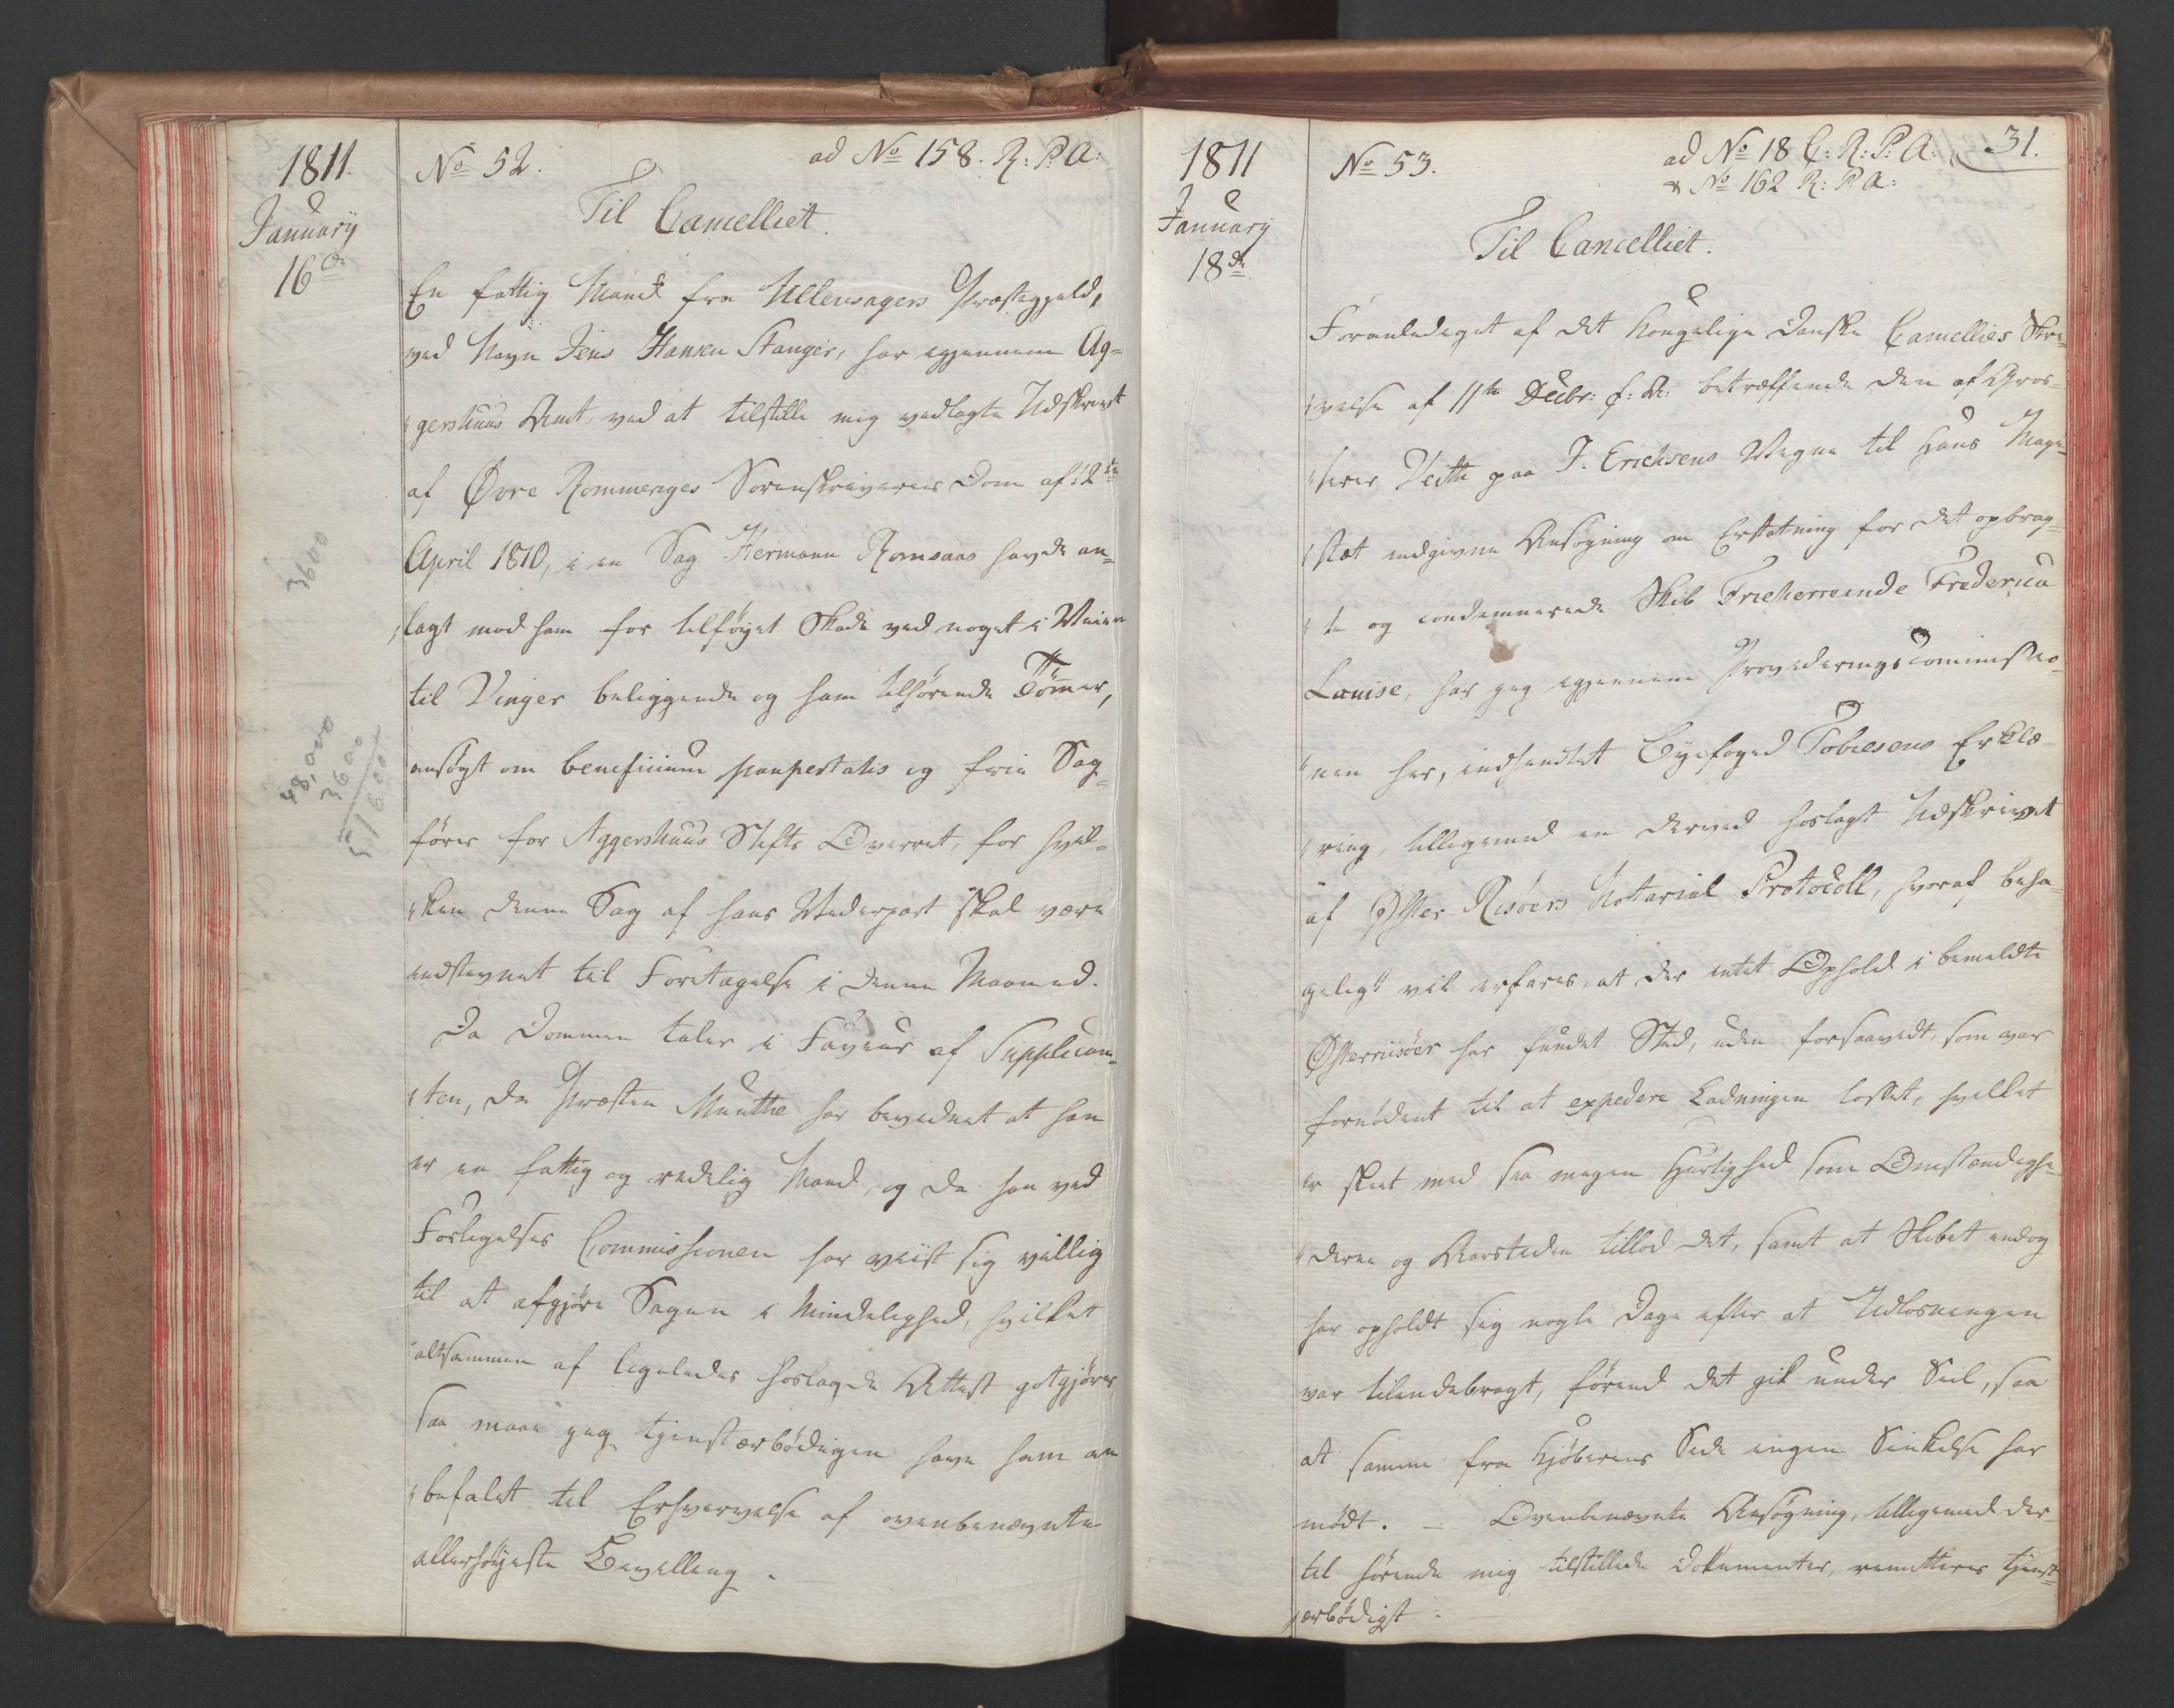 1811.
January
16de
No 52.
ad No 158. R: P: A:
Til Cancelliet.
En fattig Mand fra Ullensagers Præstegjeld,
ved Navn Jens Hansen Stanger, har igjennem Ag-
gershuus Amt, ved at tilstille mig vedlagte Udskrivt
af Øvre Rommeriges Sorenskriveries Dom af 12te
April 1810, i en Sag Hermann Romsaas havde an-
lagt mod ham for tilføyet Skade ved noget i Veien
til Vinger beliggende og ham tilhørende Tømer,
ansøgt om beneficium paupertatis og frie Sag-
fører for Aggershuus Stifts Overret, for hvil-
ken denne Sag af hans Vederpart skal være
indstevnet til Foretagelse i denne Maaned.
Da Dommen taler i Faveur af Supplican-
ten, da Præsten Munthe har bevidnet at han
er en fattig og redelig Mand, og da han ved
Forligelses Commissionen har viist sig villig
til at afgjøre Sagen i Mindelighed, hvilket
altsammen af ligeledes hoslagde Attest gotgjøres
saa maae jeg tjenstærbødigen have ham an
befalet til Erhvervelse af ovenbenævnte
allerhøyeste Bevilling.
3600
48,000
3600
51600
1811
January
18de
No 53.
ad No 18 C: R: P: A:
& No 162 R: P: A:
31.
Til Cancelliet.
Foranlediget af det Kongelige Danske Cancellies Skri-
velse af 11te Decbr: f: A: betræffende den af Gros-
serer Veith paa J. Erichsens Vegne til Hans Maje-
stæt indgivne Ansøgning om Erstatning for det opbrag-
te og condemnerede Skib Frieherreinde Frederica
Louise, har jeg igjennem Provideringscommissio-
nen her, indhentet Byefoged Tobiesens Erklæ-
ring, tilligemed en derved hoslagt Udskrivt
af Øster Risøers Notarial Protocoll, hvoraf beha-
geligt vil erfares, at der intet Ophold i bemeldte
Østerriisøer har fundet Sted, uden forsaavidt, som var
fornødent til at expedere Ladningen losset, hvilket
er skeet med saa megen Hurtighed som Omstændighe-
derne og Aarstiden tillod det, samt at Skibet endog
har opholdt sig nogle Dage efter at Udlosningen
var tilendebragt, førend det gik under Seil, saa
at samme fra Kjøberens Side ingen Sinkelse har
mødt. – Ovenbenævnte Ansøgning, tilligemed der-
til hørende mig tilstillede Dokumenter, remitteres tjenst-
ærbødigst.